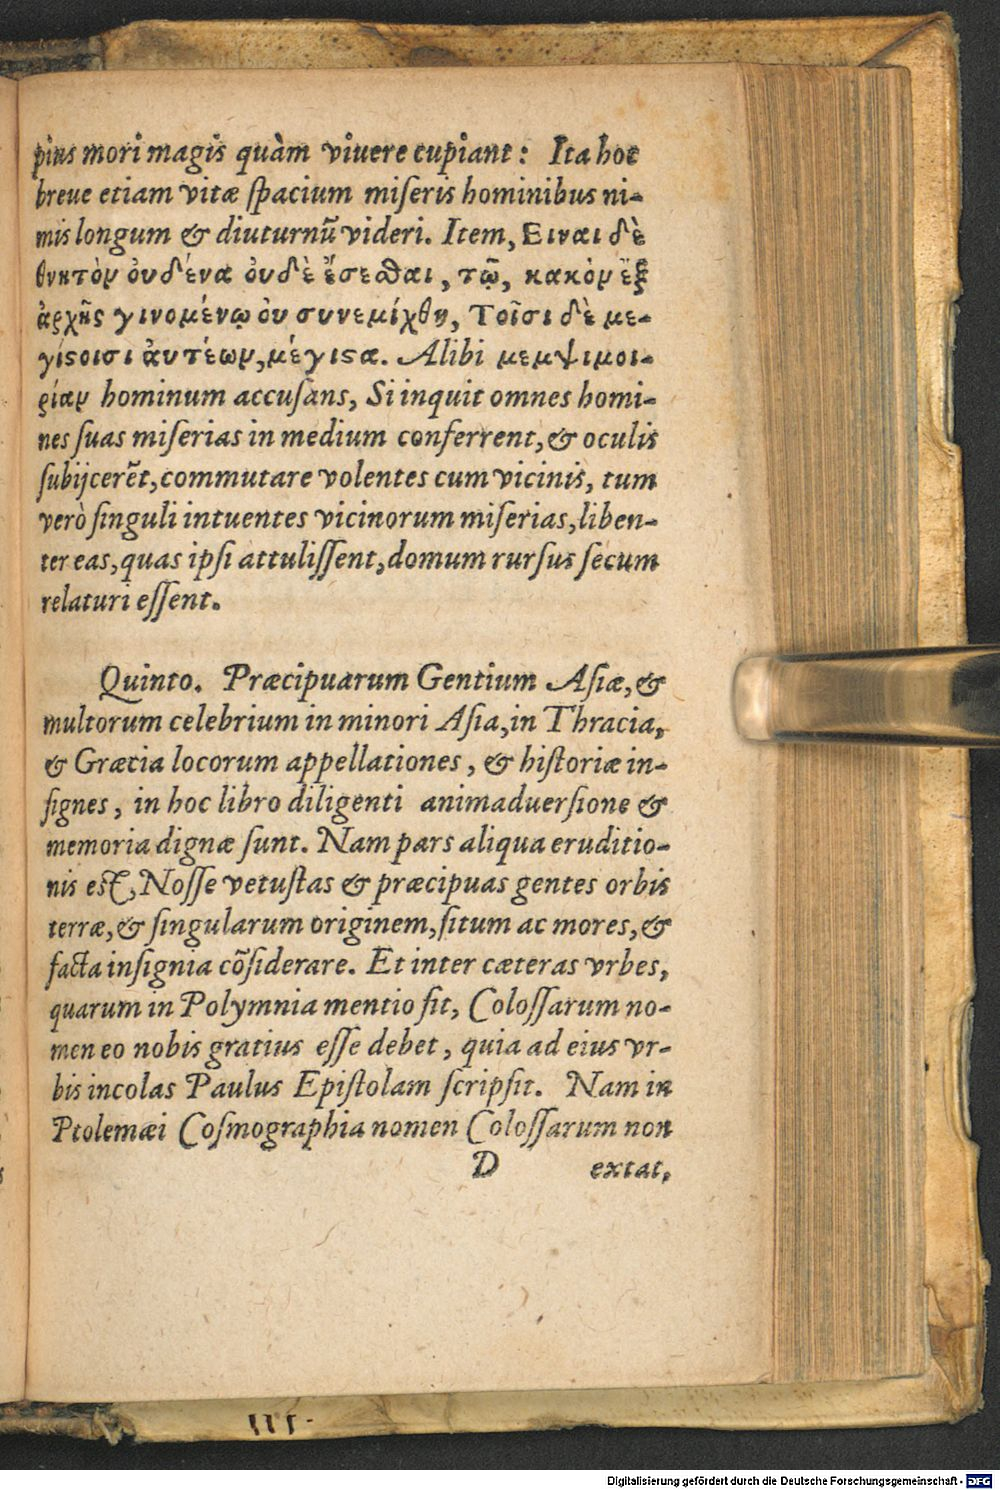 pius mori magis quàm viuere cupiant: Ita hoc
breue etiam vitæ spacium miseris hominibus ni-
mis longum & diuturnũ videri. Item, Ειναι δὲ
θνητὸν ὀυδένα ὀυδὲ ἔσεσθαι, τῷ, κακὸν ἐξ
ἀρχῆς γινομένῳ ὀυ συνεμίχθη, Τοῖσι δὲ με-
γίϛοισι ἀυτέων, μέγιϛα. Alibi μεμψιμοι-
ρίαν hominum accusans, Si inquit omnes homi-
nes suas miserias in medium conferrent, & oculis
subijcerẽt, commutare volentes cum vicinis, tum
verò singuli intuentes vicinorum miserias, liben-
ter eas, quas ipsi attulissent, domum rursus secum
relaturi essent.
Quinto. Præcipuarum Gentium Asiæ, &
multorum celebrium in minori Asia, in Thracia,
& Græcia locorum appellationes, & historiæ in-
signes, in hoc libro diligenti animaduersione &
memoria dignæ sunt. Nam pars aliqua eruditio-
nis est, Nosse vetustas & præcipuas gentes orbis
terræ, & singularum originem, situm ac mores, &
facta insignia cõsiderare. Et inter cæteras vrbes,
quarum in Polymnia mentio fit, Colossarum no-
men eo nobis gratius esse debet, quia ad eius vr-
bis incolas Paulus Epistolam scripsit. Nam in
Ptolemæi Cosmographia nomen Colossarum non
D extat,
Digitalisierung gefördert durch die Deutsche Forschungsgemeinschaft - DFG